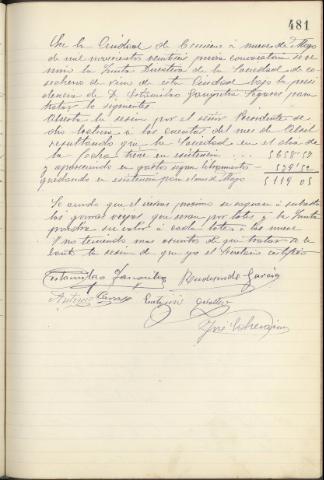 481
En la Ciudad de        á nueve de Mayo
de mil novecientos        previa convocatoria se re-
unio la Junta Directiva de la Sociedad de co-
secheros de vino de esta Ciudad bajo la presi-
dencia de D. Estanislao                para
tratar lo siguiente
Abierta la sesion por el señor Presidente se
dio lectura á las cuentas del mes de Abril
resultando que la Sociedad en el dia de
la fecha tiene en existencia 5658 59
y apareciendo en gastos segun libramientos 539 54
quedando en existencia para el mes de Mayo 5119 05
Se acordó que el viernes proximo se saquen á subasta
las        viejas que sean por lotes y la Junta
pondra su valor á cada lote á las nueve
Y no teniendo mas asuntos de que tratar se le-
vantó la sesion de que yo el Secretario certifico
Estanislao        Bustamante Garcia
Antonio
José